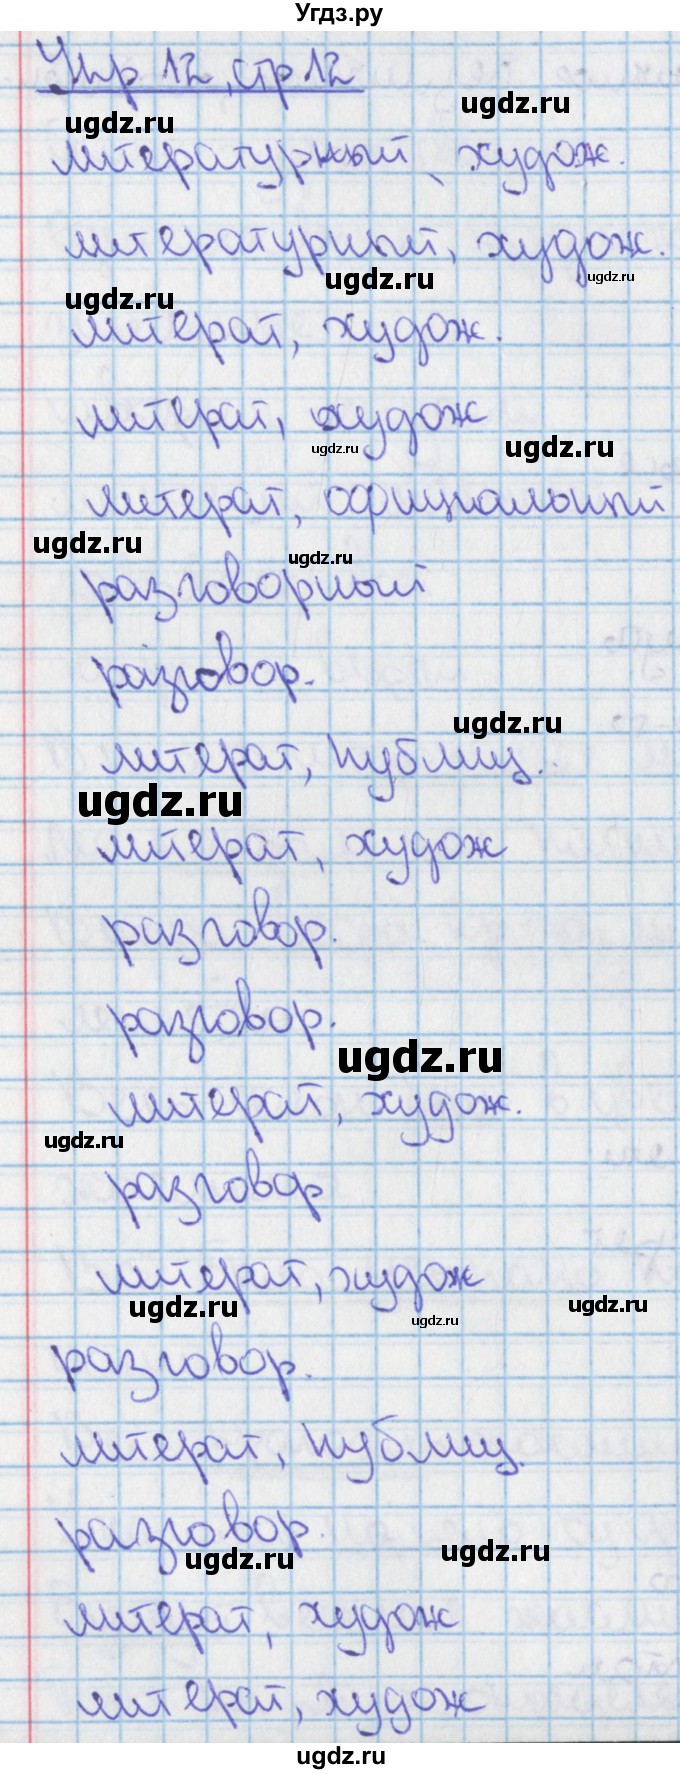 Угдз.ру
Упр 12, стр 12
ugdz.ru
ugdz.ru
литературный, худож.
литературный, худож.
ugdz.ru
ugdz.ru
ugdz.ru
литерат, худож.
литерат, худож
ugdz.ru
ugdz.ru
литерат, официальный
ugdz.ru
ugdz.ru
разговорный
разговор.
ugdz.ru
литерат, публиц.
ugdz.ru
литерат, худож
разговор.
разговор.
ugdz.ru
литерат, худож.
ugdz.ru
разговор
литерат, худож
ugdz.ru
ugdz.ru
ugdz.ru
разговор.
литерат, публиц.
разговор.
ugdz.ru
ugdz.ru
литерат, худож
литерат, худож
ugdz.ru